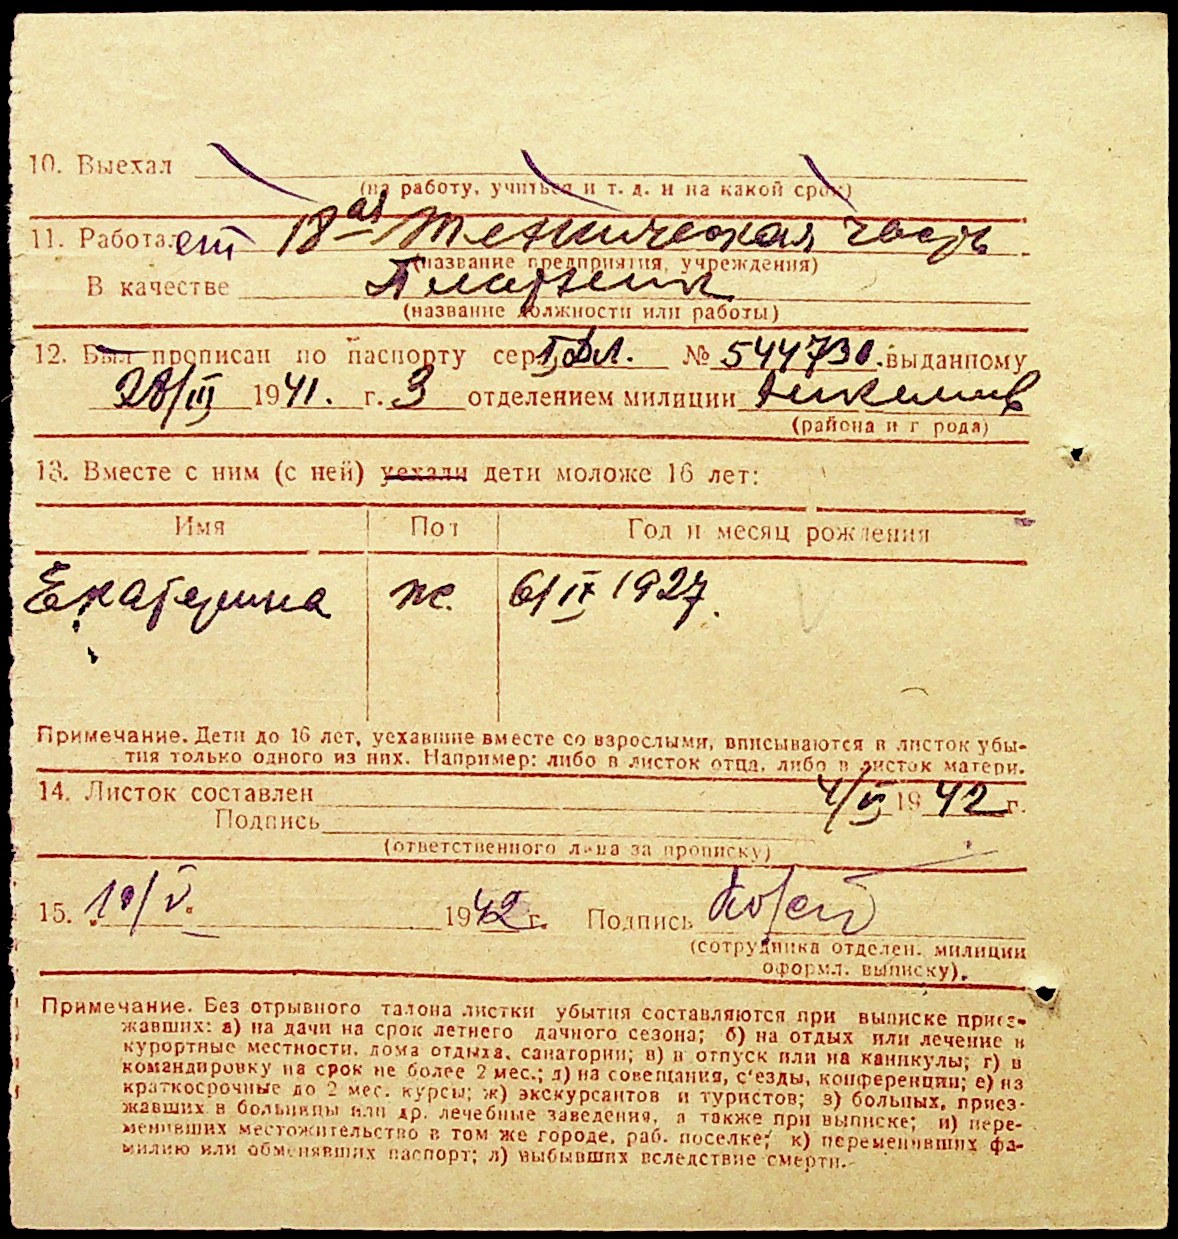 10. Выехал
(на работу, учиться и т. д. и на какой срок)
11. Работает 18ая техническая часть
(название предприятия, учреждения)
В качестве Плотник
(название должности или работы)
12. Был прописан по паспорту сер. № 544730. выданному
28/III 1941. г. 3 отделением милиции
(района и г рода)
13. Вместе с ним (с ней) уехали дети моложе 16 лет:
Имя Пол Год и месяц рождения
Екатерина ж. 6/IX 1927.
Примечание. Дети до 16 лет, уехавшие вместе со взрослыми, вписываются в листок убы-
тия только одного из них. Например: либо в листок отца, либо в листок матери.
14. Листок составлен 4/V 1942 г.
Подпись
(ответственного лица за прописку)
15. 10/V. 1942 г. Подпись
(сотрудника отделен. милиции
оформл. выписку).
Примечание. Без отрывного талона листки убытия составляются при выписке приез-
жавших: а) на дачи на срок летнего дачного сезона; б) на отдых или лечение в
курортные местности, дома отдыха, санатории; в) в отпуск или на каникулы; г) в
командировку на срок не более 2 мес.; д) на совещания, с'езды, конференции; е) на
краткосрочные до 2 мес. курсы; ж) экскурсантов и туристов; з) больных, приез-
жавших в больницы или др. лечебные заведения, а также при выписке; и) пере-
менивших местожительство в том же городе, раб. поселке; к) переменивших фа-
милию или обменявших паспорт; л) выбывших вследствие смерти.